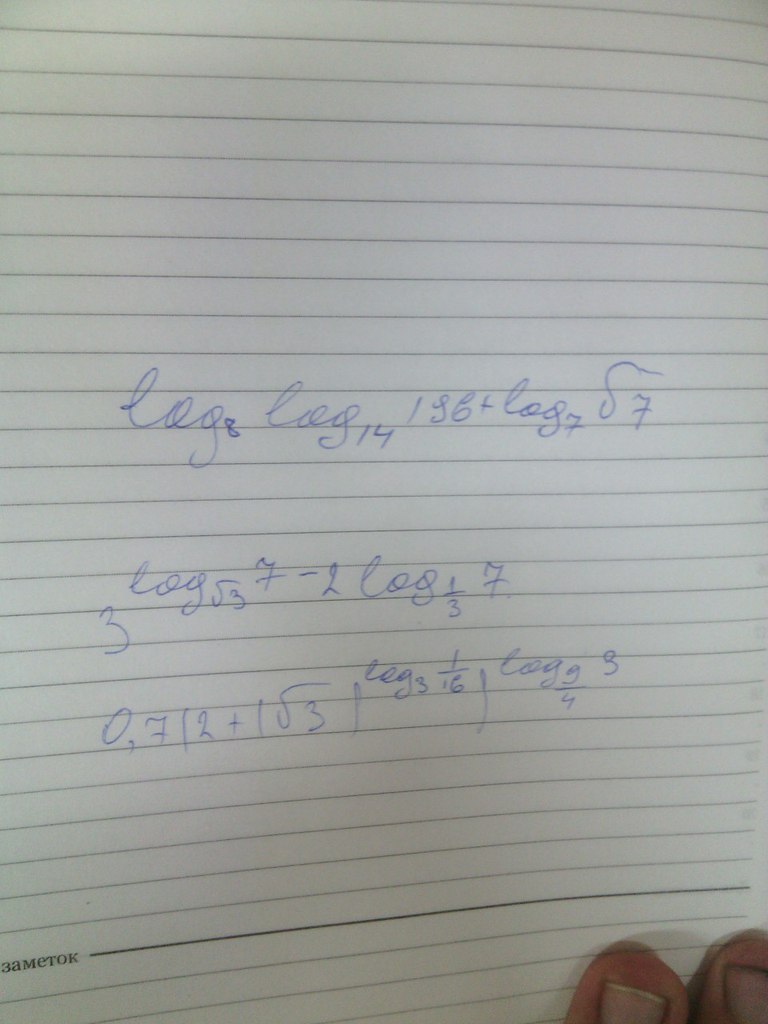 log₈ log₁₄ 196 + log₇ √7
3^(log_√3 7 - 2 log_(1/3) 7)
0,7(2+(√3)^(log₃ 1/16))^(log_(9/4) 3)
заметок